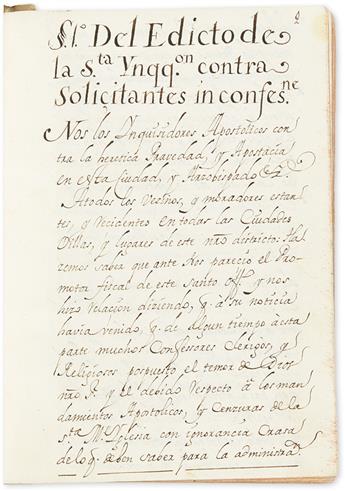 2
§.1º. Del Edicto de
la S.ta Ynqq.on contra
Solicitantes in confes.ne
Nos los Ynquisidores Apostolicos con-
tra la heretica Pravedad, y Apostacia
en esta Ciudad, y Arzobispado &.ª
Atodos los Vesinos, y moradores estan-
tes, y recidentes en todas las Ciudades
Villas, y lugares de este nrô districto: Ha-
zemos saber que ante Nos parecio el Pro-
motor fiscal de este santo Off.º y nos
hizo relacion diziendo, q. à su noticia
havia venido, q. de algun tiempo àesta
parte muchos Confessores Clerigos, y
Religiosos pospuesto el temor de Dios
nrô S.r y el debido respecto â los man-
damientos Apostolicos, y Cenzuras de la
S.ta M.e Yglesia con ignorancia Crasa
de lo q. deben saber para la administraⁿ.